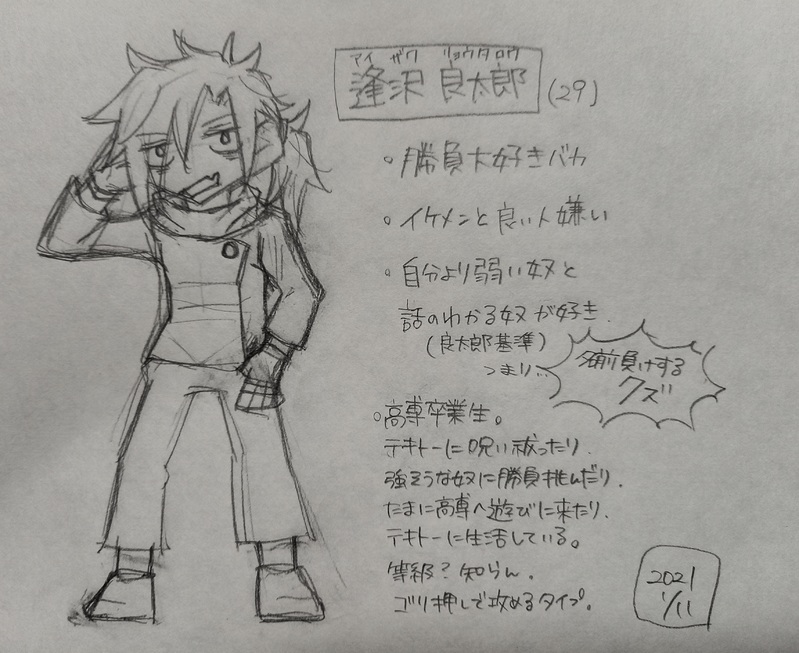 アイ ザワ リョウタロウ
逢沢 良太郎 (29)
。勝負大好きバカ
。イケメンと良い人嫌い
。自分より弱い奴と
話のわかる奴が好き.
(良太郎基準)
つまり…
名前負けする
クズ
。高専卒業生。
テキトーに呪い祓ったり.
強そうな奴に勝負挑んだり.
たまに高専へ遊びに来たり.
テキトーに生活している。
等級?知らん.
ゴリ押しで攻めるタイプ。
2021
1/11